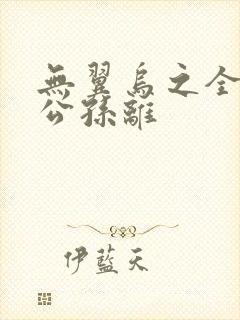 無翼烏之全
公孫離
伊藍天